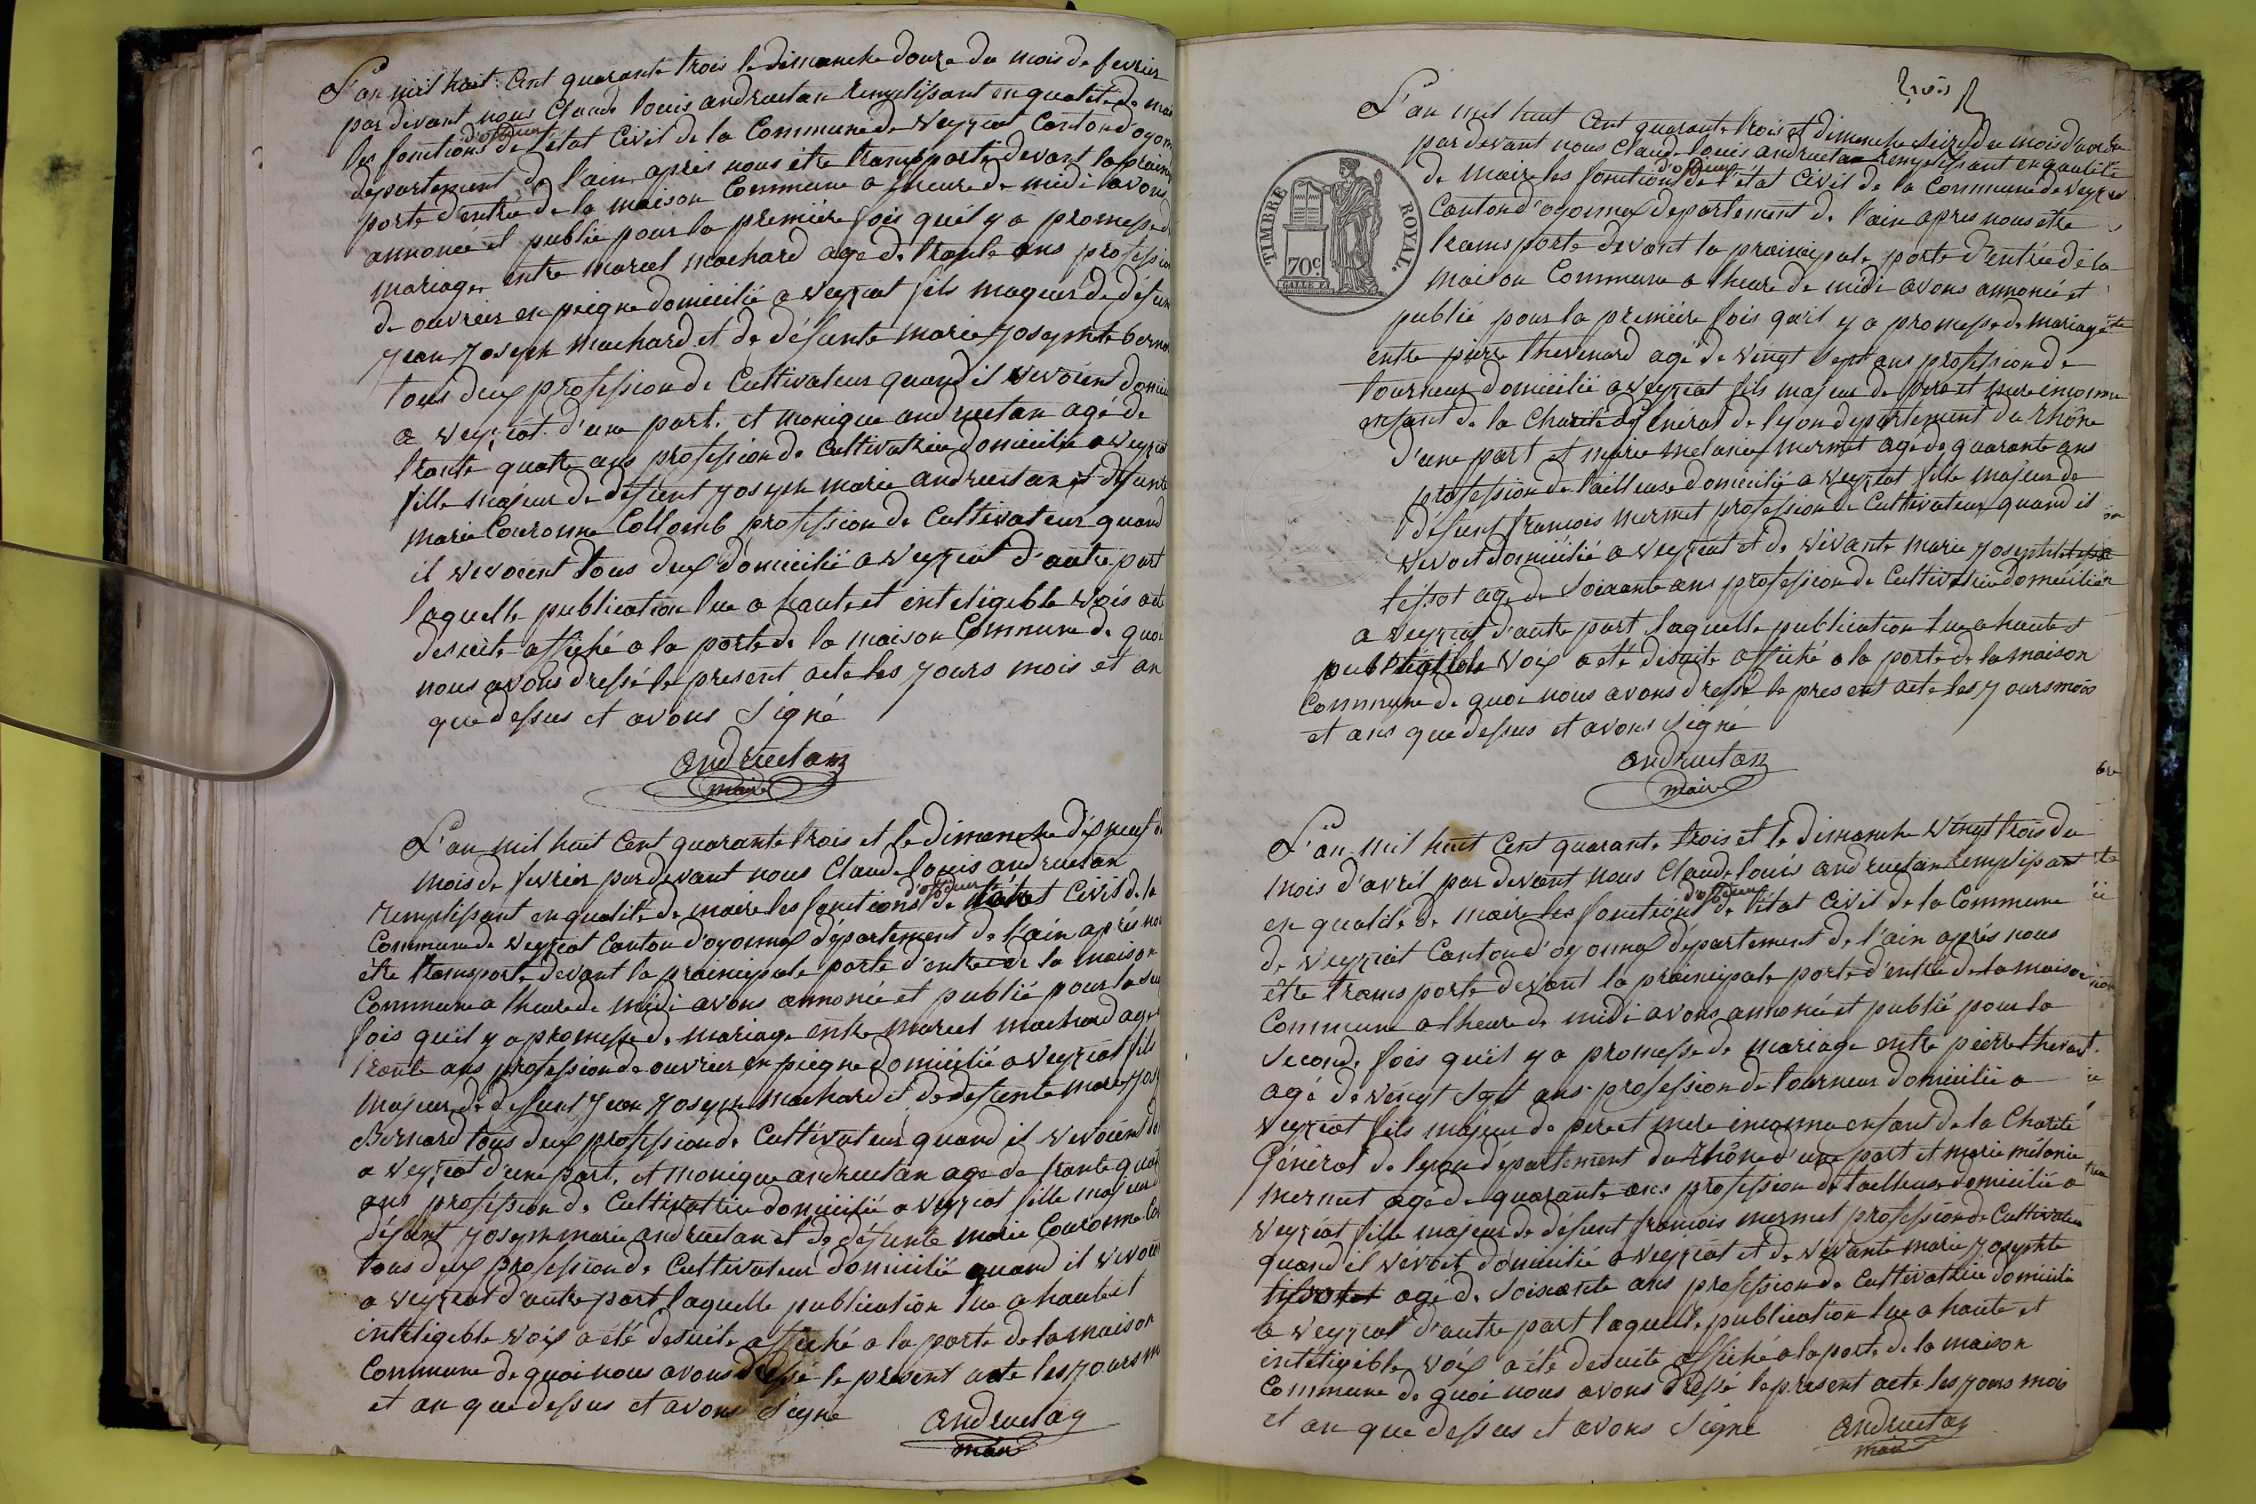 L'an mil huit Cent quarante trois le dimanche douze du mois de fevrier
par devant nous Claude louis andruetan remplissant en qualité de mai
les fonctions d'officier de l'état Civil de la Commune de Veyziat Canton d'oyon
departement de l'ain apres nous être transporte devant la prain
porte d'entrée de la maison Commune a lheure de midi avons
annoncé et publié pour la premiere fois qu'il y a promesse d
mariage entre marcel machard age de trante ans professio
de ouvrier en peigne domicilié a Veyziat fils mageur de defun
jean joseph machard et de défunte marie josephte berna
tous deux profession de Cultivateur quand il vivoient domici
a Veyziat d'une part, et monique andruetan agé de
trante quatre ans profession de Cultivatrice domicilié a Veyzia
fille majeur de défunt joseph marie andruetan et defunte
marie Couronne Collomb profession de Cultivateur quand
il vivoient tous deux domicilié a Veyziat d'autre part
laquelle publication lue a haute et enteligible Vois a ete
desuite affiché a la porte de la maison Commune de quoi
nous avons dressé le present acte les jours mois et an
que dessus et avons Signé
andruetan
maire
L'an mil huit Cent quarante trois et le dimanche dix neuf d
mois de fevrier par devant nous Claude louis andruetan
remplissant en qualité de maire les fonctions d'officier de l'état Civil de la
Commune de Veyziat Canton d'oyonnax département de l'ain après nou
être transporte devant la prainicipale porte d'entre de la maison
Commune a lheure de midi avons annoncé et publié pour la se
fois qu'il y a promesse de mariage entre marcel machard age
trante ans profession de ouvrier en peigne domicilié a Veyziat fils
majeur de defunt jean joseph machard et de defunte marie jos
Bernard tous deux profession de Cultivateur quand il vivoient do
a Veyziat d'une part, et monique andruetan age de trante quat
ans profession de Cultivatrice domicilié a Veyziat fille majeur d
défunt joseph marie andruetan et de défunte marie Couronne Co
tous deux profession de Cultivateur domicilié quand il vivoient
a Veyziat d'autre part laquelle publication lue a haute et
inteligible voix a été desuite affiché a la porte de la maison
Commune de quoi nous avons dressé le present acte les jours m
et an que dessus et avons Signe
andruetan
maire
trois
TIMBRE ROYAL.
70c
L'an mil huit Cent quarante trois et dimanche seize du mois d'avril
par devant nous Claude louis andruetan remplissant en qualité
de maire les fonctions d'officier de l'état Civil de la Commune de Veyzia
Canton d'oyonnax departement de l'ain apres nous etre
transporte devant la prainicipale porte d'entrée de la
maison Commune a lheure de midi avons annoncé et
publié pour la premiere fois qu'il y a promesse de mariage
entre pierre thevenard agé de vingt sept ans profession de
tourneur domicilié a Veyziat fils majeur de pere et mere inconnu
enfant de la Charité General de lyon departement du Rhône
d'une part et marie melanie mermet age de quarante ans
profession de tailleuse domicilié a Veyziat fille majeur de
défunt francois mermet profession de Cultivateur quand il
vivoit domicilié a Veyziat et de vivante marie josephte
tissot age de Soixante ans profession de Cultivatrice domicilié
a Veyziat d'autre part laquelle publication lue a haute et
Voix a été desuite affiché a la porte de la maison
Commune de quoi nous avons dressé le present acte les jours mois
et ans que dessus et avons Signé
andruetan
maire
L'an mil huit Cent quarante trois et le dimanche vingt trois du
mois d'avril par devant nous Claude louis andruetan remplissant
en qualité de maire les fonctions d'officier de l'état Civil de la Commune
de Veyziat Canton d'oyonnax département de l'ain après nous
être transporte devant la prainicipale porte d'entre de la maison
Commune a lheure de midi avons annoncé et publié pour la
Seconde fois qu'il y a promesse de mariage entre pierre thevard
agé de vingt sept ans profession de tourneur domicilié a
Veyziat fils majeur de pere et mere inconnu enfant de la Charité
Général de lyon département du Rhône d'une part et marie mélanie
mermet agé de quarante ans profession de tailleuse domicilié a
Veyziat fille majeur de défunt francois mermet profession de Cultivateur
quand il vivoit domicilié a Veyziat et de vivante marie josephte
tissot age de Soixante ans profession de Cultivatrice domicilié
a Veyziat d'autre part laquelle publication lue a haute et
inteligible voix a été desuite affiché a la porte de la maison
Commune de quoi nous avons dressé le present acte les jours mois
et an que dessus et avons Signé
andruetan
maire